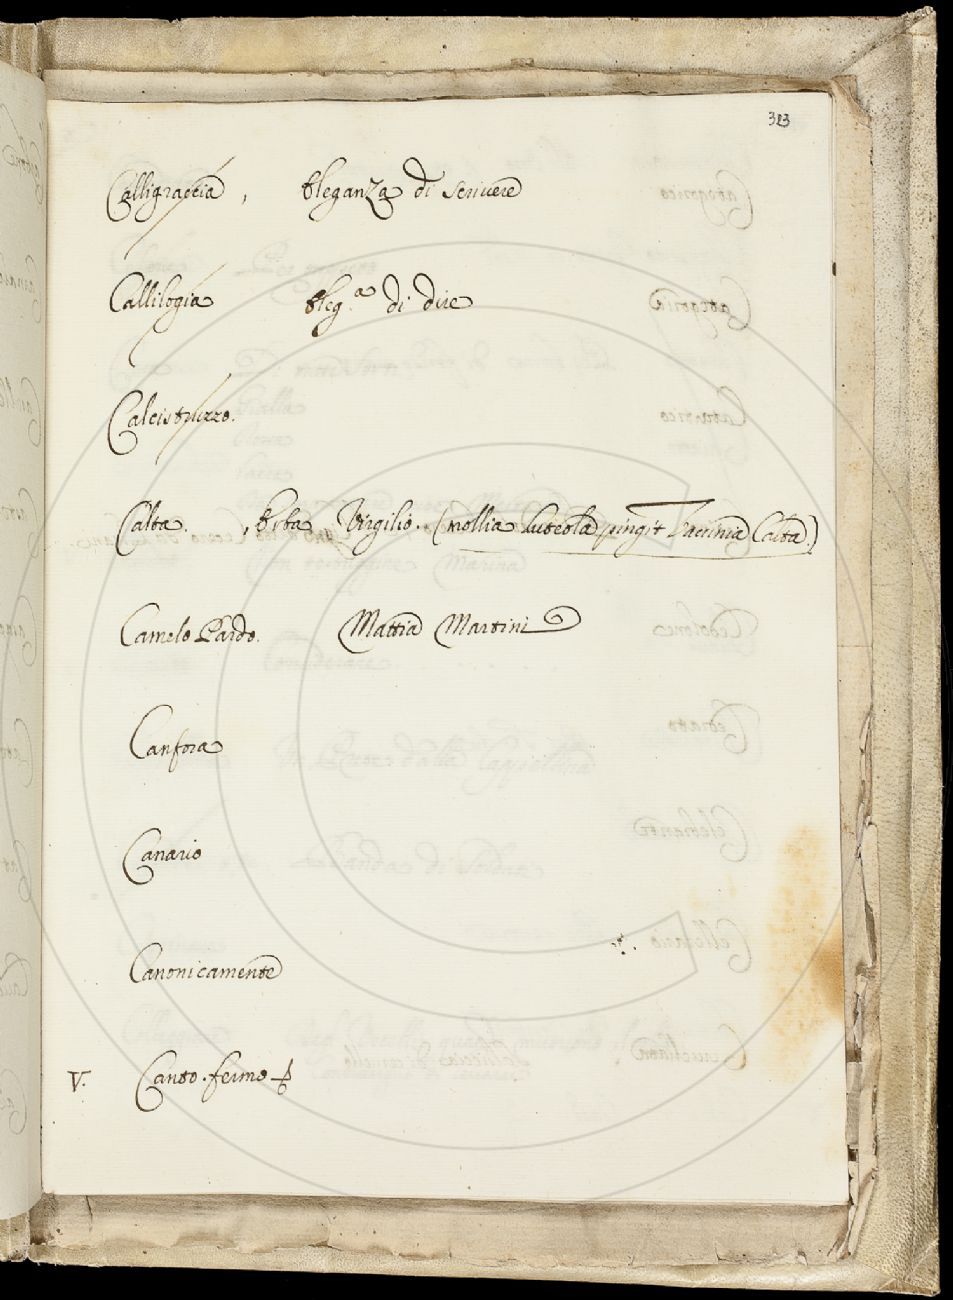 323
Calligraccia, Eleganza di scriuere
Callilogia Eleg.a di dire
Calcistruzzo.
Calta. , Erba Virgilio. (mollia Luteola pingit Vaccinia Calta.)
Camelo Pardo. Mattia Martini
Canfora
Canario
Canonicamente
V. Canto. fermo